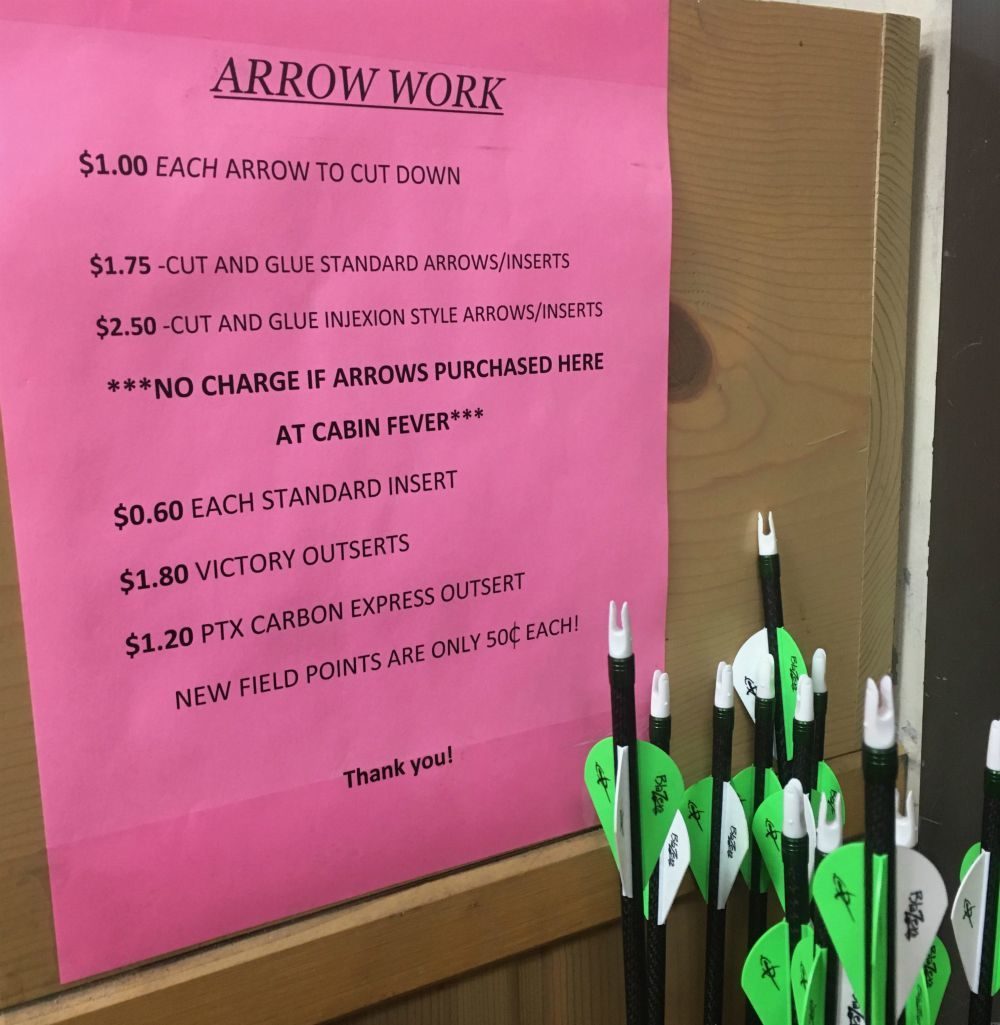 ARROW WORK
$1.00 EACH ARROW TO CUT DOWN
$1.75 -CUT AND GLUE STANDARD ARROWS/INSERTS
$2.50 -CUT AND GLUE INJEXION STYLE ARROWS/INSERTS
***NO CHARGE IF ARROWS PURCHASED HERE
AT CABIN FEVER***
$0.60 EACH STANDARD INSERT
$1.80 VICTORY OUTSERTS
$1.20 PTX CARBON EXPRESS OUTSERT
NEW FIELD POINTS ARE ONLY 50¢ EACH!
Thank you!
Blazer
Blazer
Blazer
Blazer
Blazer